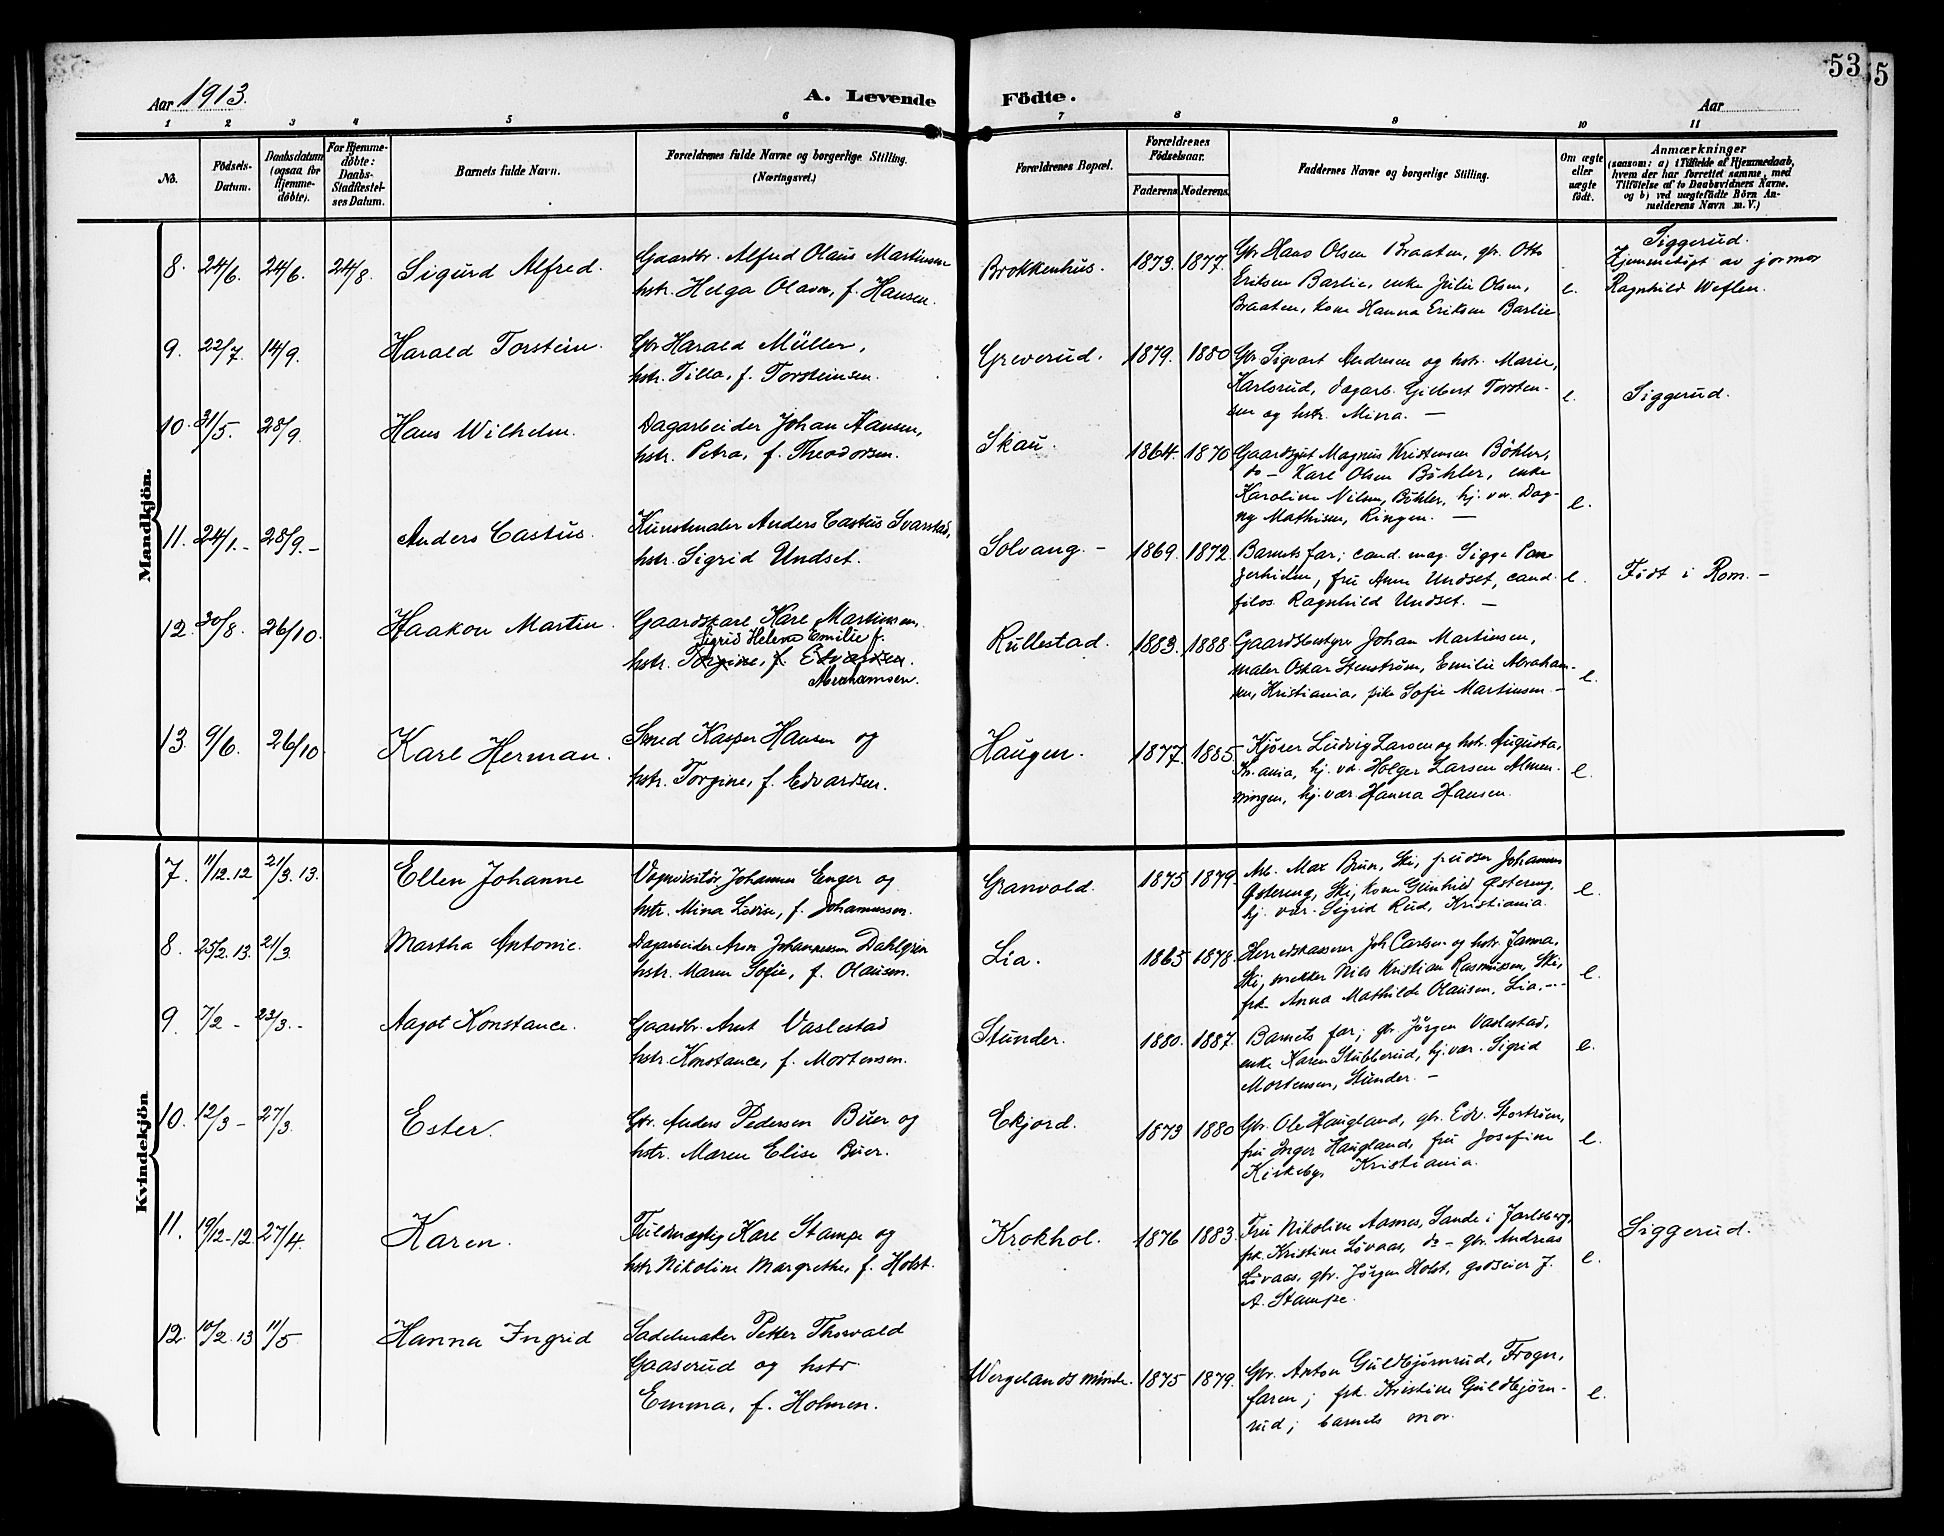 53
55
Aar 1913.
A. Levende
Födte.
Aar
1 2 3 4 5 6 7 8 9 10 11
No.
Födsels-Datum.
Daabsdatum (ogsaa for Hjemme-døbte).
For Hjemme-døbte: Daabs-Stadfæstel-ses Datum.
Barnets fulde Navn.
Forældrenes fulde Navne og borgerlige Stilling.
(Næringsvei.)
Forældrenes Bopæl.
Forældrenes Födselsaar.
Faderens. Moderens.
Faddernes Navne og borgerlige Stilling.
Om ægte eller uægte født.
Anmærkninger
(saasom: a) i Tilfælde af Hjemmedaab,
hvem der har forrettet samme, med
Tilföielse af to Daabsvidners Navne.
og b) ved uægtefödte Börn An-
melderens Navn m. V.)
Mandkjön.
8. 24/6. 24/6. 24/8. Sigurd Alfred.
Gaardbr. Alfred Olaus Martinsen
hstr. Helga Olava, f. Hansen.
Brokkenhus. 1873. 1877.
Gbr Hans Olsen Braaten, gbr. Otto
Eriksen Barlie, enke Julie Olsen,
Braaten, kone Hanna Eriksen Barlie
e.
Siggerud.
Hjemmedøpt av jormor
Ragnhild Weflen.
9. 22/7. 14/9. Harald Torstein.
Gbr Harald Müller,
hstr. Tilla, f. Torsteinsen.
Greverud. 1879. 1880
Gbr Sigvart Andresen og hstr. Marie,
Karlsrud, dagarb. Gilbert Torsten-
sen og hstr. Mina. —
e.
Siggerud.
10. 31/5. 28/9. Hans Wilhelm.
Dagarbeider Johan Hansen,
hstr. Petra, f. Theodorsen.
Skau. 1864. 1870
Gaardsgut Magnus Kristensen Bøhler,
do — Karl Olsen Bøhler, enke
Karoline Nilsen, Bøhler, hj. vær. Dag-
ny Mathisen, Ringen. —
e.
11. 24/1.- 28/9.- Anders Castus.
Kunstmaler Anders Castus Svarstad,
hstr. Sigrid Undset.
Solvang.- 1869. 1872.
Barnets far; cand. mag. Sigge Pan-
zerhielm, frk Anne Undset, cand.
filos. Ragnhild Undset. —
e.
Født i Rom.-
12. 30/8. 26/10. Haakon Martin.
Gaardskarl Karl Martinsen,
Sigrid Helene Emilie f.
hstr. Torgine, f. Edvardsen.
Abrahamsen.
Rullestad. 1883. 1888.
Gaardsbestyrer Johan Martinsen,
maler Oskar Stenstrøm, Emilie Abraham-
sen, Kristiania, pike Sofie Martinsen.-
e.
13. 9/6. 26/10 Karl Herman.
Smed Kasper Hansen og
hstr. Torgine, f. Edvardsen.
Haugen. 1877. 1885.
Kjører Ludvig Larsen og hstr. Augusta,
Kr.ania, hj. vær. Holger Larsen Almen-
ningen, hj. vær. Hanna Hansen.
e.
Kvindekjön
7. 11/12.12 21/3.13. Ellen Johanne
Vognvisitør Johannes Enger og
hstr. Mina Lovise, f. Johannessen.
Granvold. 1875 1879.
Arb. Max Brun, Ski, pudser Johannes
Østereng, Ski, kone Gunhild Østereng,
hj. vær. Sigrid Rud, Kristiania.
e.
8. 25/2.13. 21/3. Martha Antonie.
Dagarbeider Aron Johannessen Dahlgren
hstr. Maren Sofie, f. Olausen.
Lia. 1865 1878.
Herredskasserer Joh Carlsen og hstr. Janna,
Ski, snekker Nils Kristian Rasmussen, Ski,
frk. Anna Mathilde Olausen, Lia.-
e.
9. 7/2 - 23/3.- Aagot Konstance.
Gaardbr. Arnt Vaslestad
hstr. Konstance, f. Mortensen.
Stunder. 1880. 1887.
Barnets far; gbr. Jørgen Vaslestad,
enke Karen Stubberud, hj. vær. Sigrid
Mortensen, Stunder. —
e.
10. 12/3 - 27/3. Ester.
Gbr. Anders Pedersen Buer og
hstr. Maren Elise Buer.
Ekjord. 1873 1880
Gbr. Ole Haugland, gbr. Edv. Stortrøen,
fru Inger Haugland, fru Josefine
Kirkeby, Kristiania.
e.
11. 19/12-12 27/4. Karen.
Fuldmægtig Karl Stampe og
hstr Nikoline Margrethe, f. Holst.
Krokhol. 1876 1883.
Fru Nikoline Aasnes, Sande i Jarlsberg,
frk. Kristine Løvaas, do - gbr. Andreas
Løvaas, gbr. Jørgen Holst, godseier J.
A. Stampe.
e.
Siggerud.
12. 10/2.13 11/5 Hanna Ingrid
Sadelmaker Petter Thorvald
Gaaserud og hstr
Emma, f. Holmen.
Wergelands minde. 1875 1879.
Gbr. Anton Guldbjørnrud, Frogn,
faren; frk. Kristine Guldbjørn-
rud; barnets mor.
e.